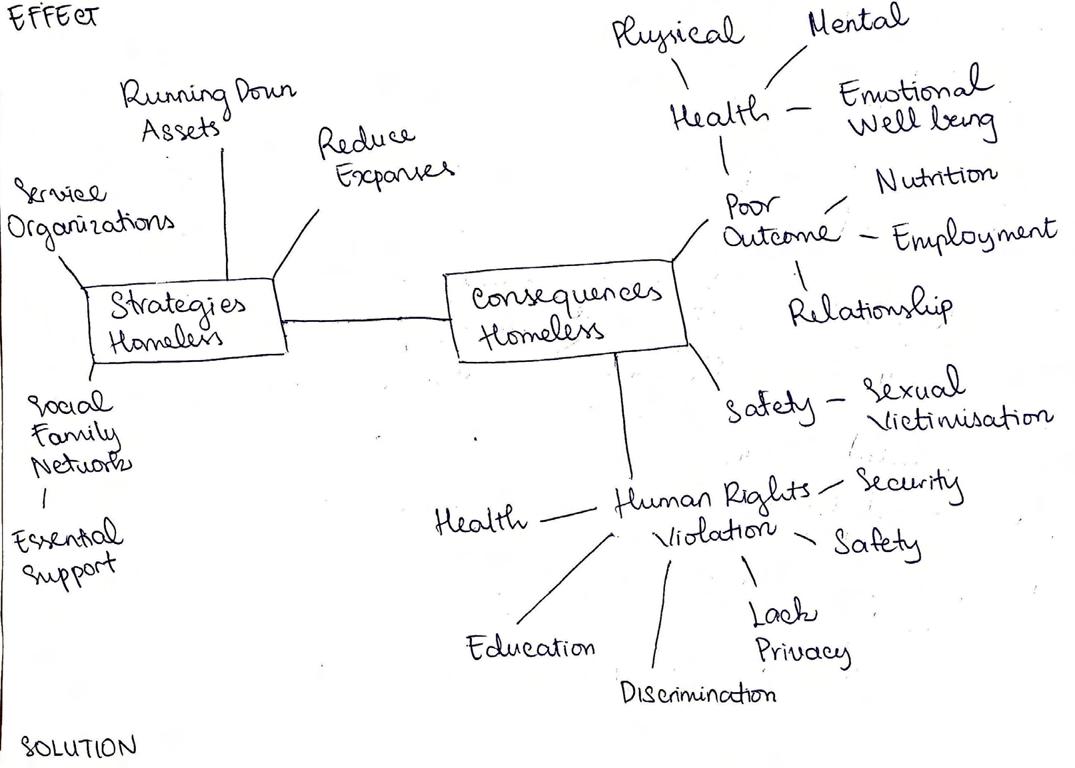 EFFECT
Physical
Mental
Running Down
Assets
Reduce
Expanses
Health
Emotional
Well being
Service
Organizations
Nutrition
Poor
Outcome
Employment
Relationship
Strategies
Homeless
Consequences
Homeless
Social
Family
Network
Essential
Support
Safety
Sexual
Victimisation
Human Rights
Violation
Security
Safety
Health
Lack
Privacy
Education
Discrimination
SOLUTION